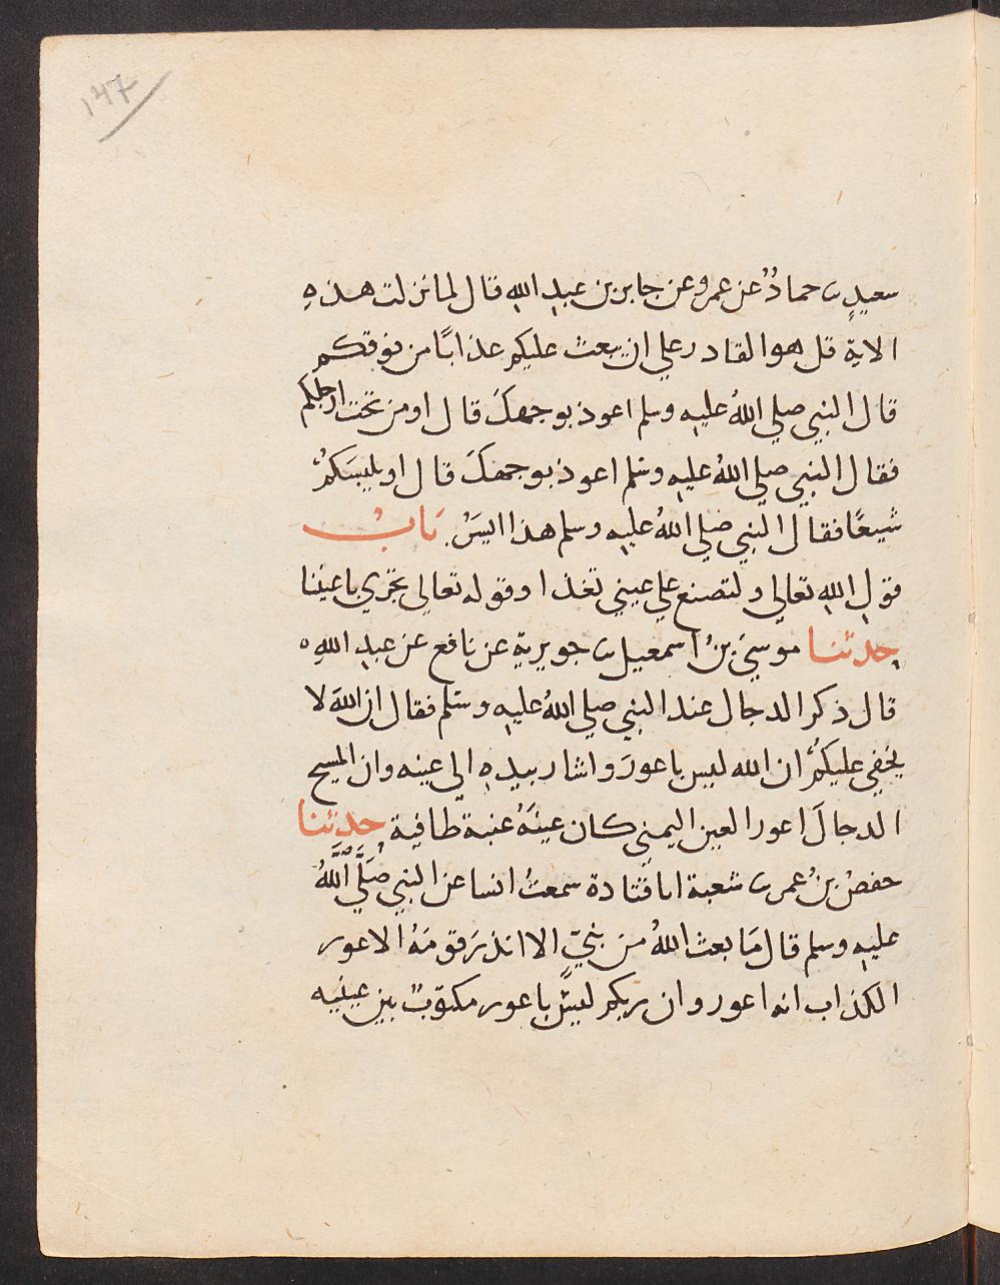 ١٤٧
سعيدٍ ثنا حمادٌ عن عمرو عن جابر بن عبدِ اللهِ قال لما نزلت هذهِ
الاية قل هو القادر علي ان يبعث عليكم عذابًا من فوقكم
قال النبي صلي اللهُ عليه وسلم اعوذ بوجهكَ قال او من تحت ارجلكم
فقال النبي صلي اللهُ عليه وسلم اعوذ بوجهكَ قال او يلبسَكمْ
شيعًا فقال النبي صلي اللهُ عليه وسلم هذا ايسَرُ بَابُ
قولِ اللهِ تعالي ولتصنع علي عيني تغذا وقوله تعالي تجري باعيننا
حدثنا موسي بنُ اسمعيل ثنا جويرية عن نافع عن عبدِ اللهِ ه
قال ذكر الدجال عند النبي صلي اللهُ عليه وسلم فقال ان اللهَ لا
يخفي عليكمْ ان الله ليس باعورَ واشار بيدهِ الي عينه وان المسيح
الدجالَ اعور العين اليمني كان عينَهُ عنبة طافية حدثنا
حفصُ بنُ عمر ثنا شعبة انا قتادة سمعتُ انسا عن النبي صَلَّي اللَّهُ
عليه وسلم قال مَا بعث اللهُ من نبيّ الا انذرَ قومَهُ الاعور
الكذاب انه اعور وان ربكم ليسَ باعور مكتوبٌ بين عينيه